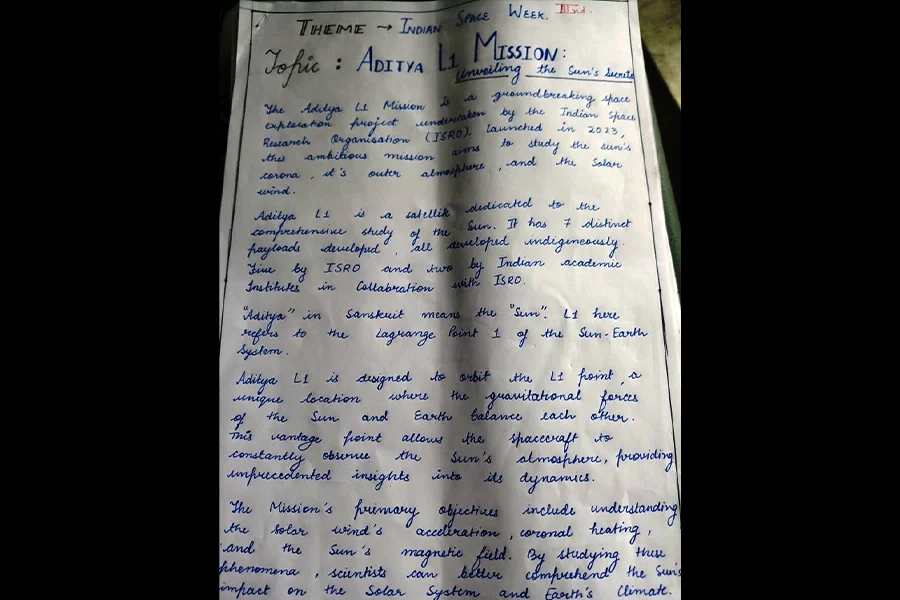 THEME → INDIAN SPACE WEEK. IInd.
Topic : ADITYA L1 MISSION:
Unveiling the Sun's Secrets
The Aditya L1 Mission is a groundbreaking space
exploration project undertaken by the Indian Space
Research Organisation (ISRO). Launched in 2023,
this ambitious mission aims to study the sun's
corona, it's outer atmosphere, and the Solar
wind.
Aditya L1 is a satellite dedicated to the
comprehensive study of the Sun. It has 7 distinct
payloads developed, all developed indigeneously.
Five by ISRO and two by Indian academic
Institutes in Collabration with ISRO.
"Aditya" in Sanskrit means the "Sun". L1 here
refers to the Lagrange Point 1 of the Sun-Earth
System.
Aditya L1 is designed to orbit the L1 point, a
unique location where the gravitational forces
of the Sun and Earth balance each other.
This vantage point allows the spacecraft to
constantly observe the Sun's atmosphere, providing
unprecedented insights into its dynamics.
The Mission's primary objectives include understanding
the Solar wind's acceleration, coronal heating,
and the Sun's magnetic field. By studying these
phenomena, scientists can better comprehend the Sun's
impact on the Solar System and Earth's Climate.